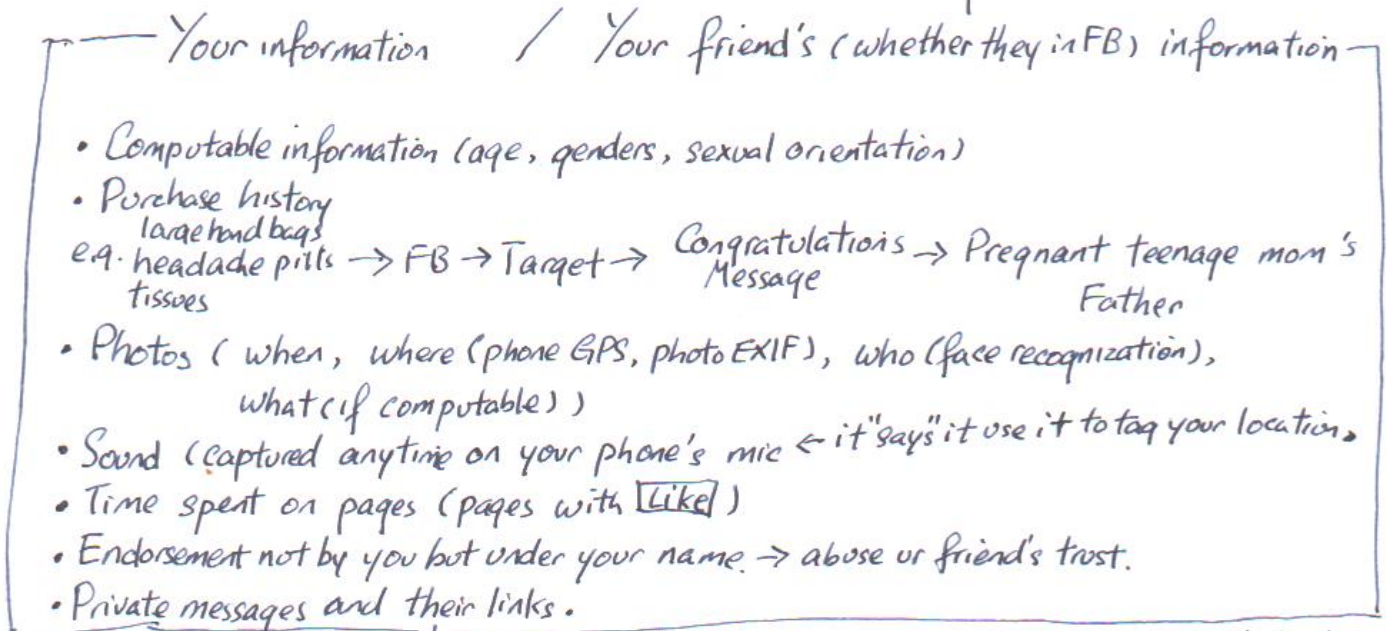 Your information / Your friend's (whether they in FB) information
• Computable information (age, genders, sexual orientation)
• Purchase history
large hand bags
e.g. headache pills → FB → Target → Congratulations → Pregnant teenage mom's
tissues Message Father
• Photos ( when, where (phone GPS, photo EXIF), who (face recognization),
what (if computable) )
• Sound (captured anytime on your phone's mic ← it "says" it use it to tag your location.
• Time spent on pages (pages with Like )
• Endorsement not by you but under your name. → abuse ur friend's trust.
• Private messages and their links.